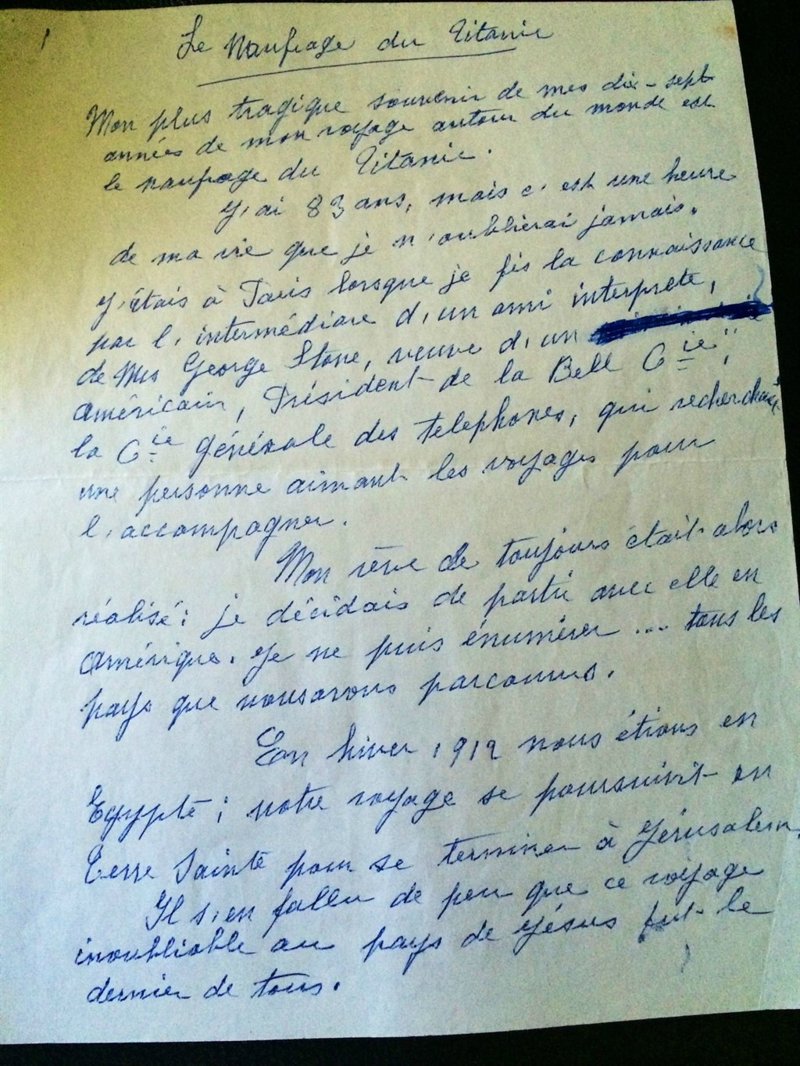 1
Le Naufrage du Titanic
Mon plus tragique souvenir de mes dix-sept
années de mon voyage autour du monde est
le naufrage du Titanic.
J'ai 83 ans, mais c'est une heure
de ma vie que je n'oublierai jamais.
J'étais à Paris lorsque je fis la connaissance
par l'intermédiare d'un ami interprète,
de Mrs George Stone, veuve d'un
américain, Président de la Bell Cie",
la Cie générale des telephones, qui recherchait
une personne aimant les voyages pour
l'accompagner.
Mon rêve de toujours était alors
réalisé: je décidais de partir avec elle en
Amérique. Je ne puis énumérer ... tous les
pays que nousavons parcourus.
En hiver 1912 nous étions en
Egypte; notre voyage se poursuivit en
Terre Sainte pour se terminer à Jérusalem.
Il s'en fallu de peu que ce voyage
inoubliable au pays de Jésus fut le
dernier de tous.